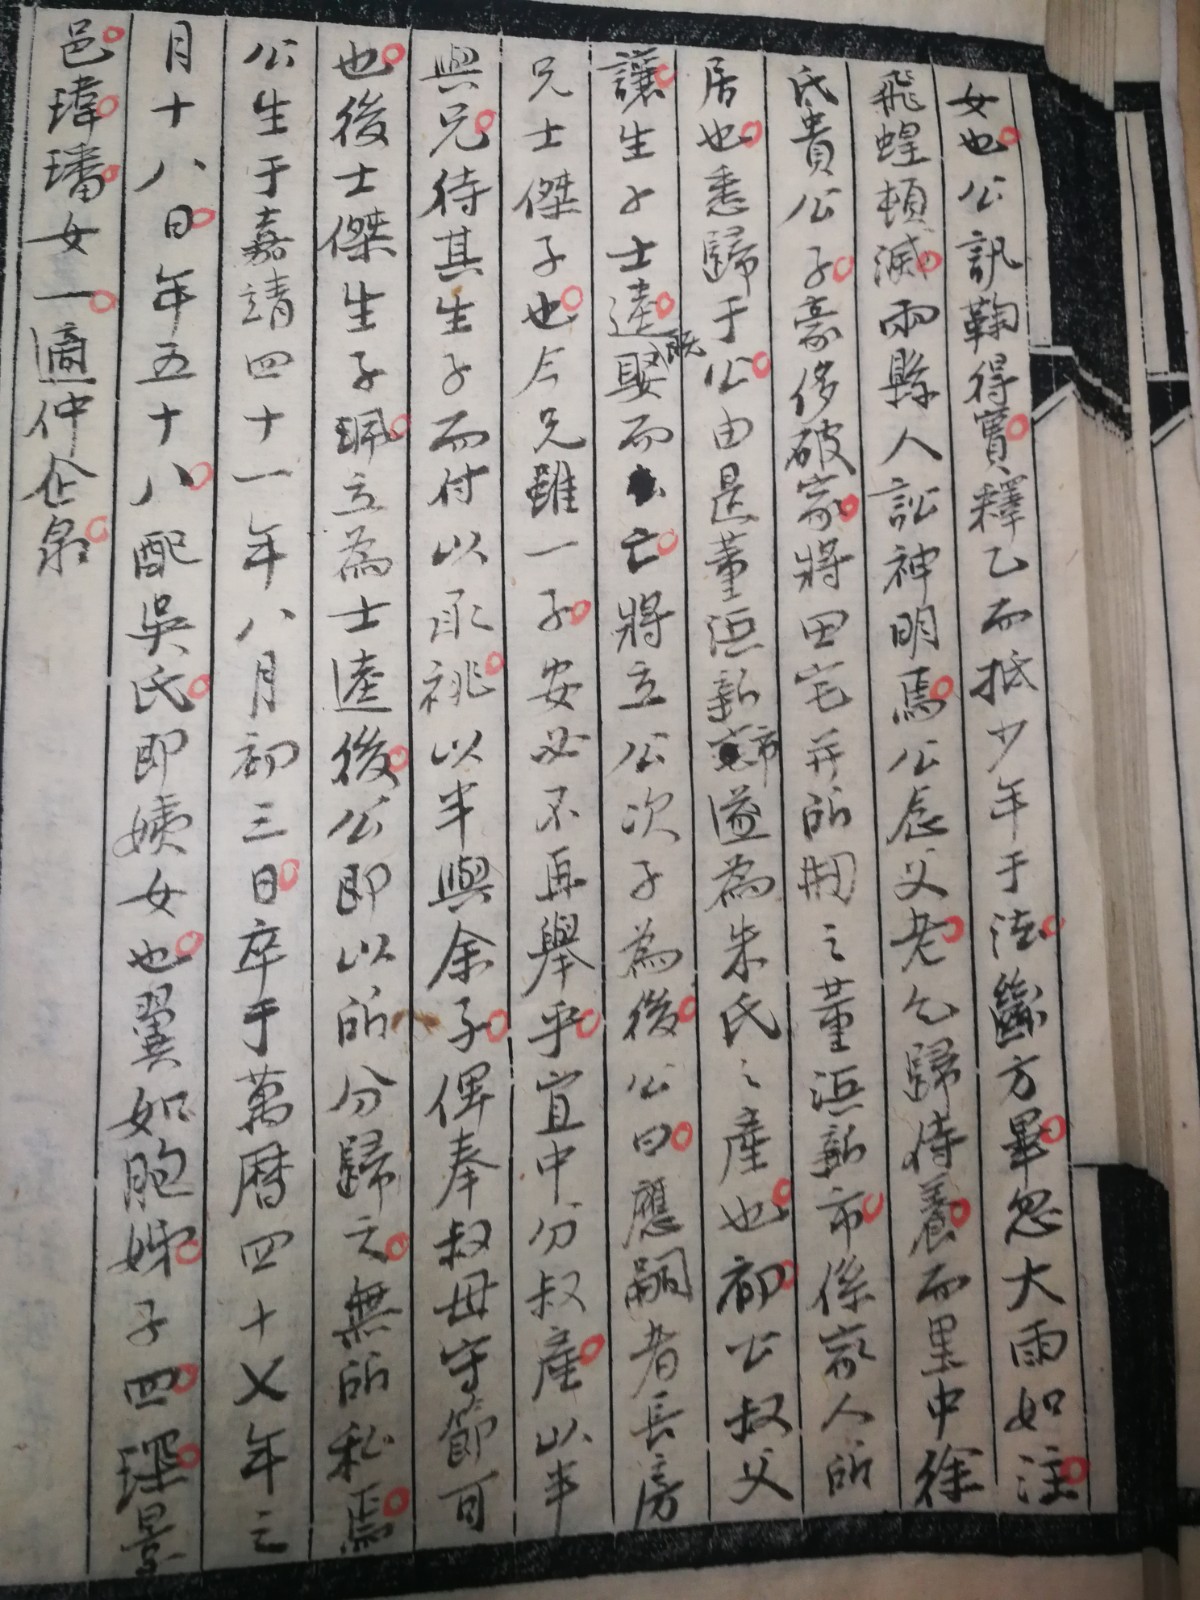 女也公訊鞫得實釋乙而抵少年于法斷方畢忽大雨如注
飛蝗頓滅兩縣人訟神明焉公辰父老乞歸侍養而里中徐
氏貴公子豪侈破家將田宅并所開之董浜新市係家人所
居也悉歸于公由是董浜新市遂為朱氏之產也都公叔父
讓生子士逵娶而亡將立公次子為後公曰應嗣者長房
兄士傑子也今兄雖一子安必不再舉乎宜中分叔產以半
與兄待其生子而付以承祧以半與余子俾奉叔母守節可
也後士傑生子珮立為士逵後公即以所分歸之無所私焉
公生于嘉靖四十一年八月初三日卒于萬曆四十七年三
月十八日年五十八配吳氏即姨女也翼如胞姊子四琛景
邑瑋璠女一適仲企泉